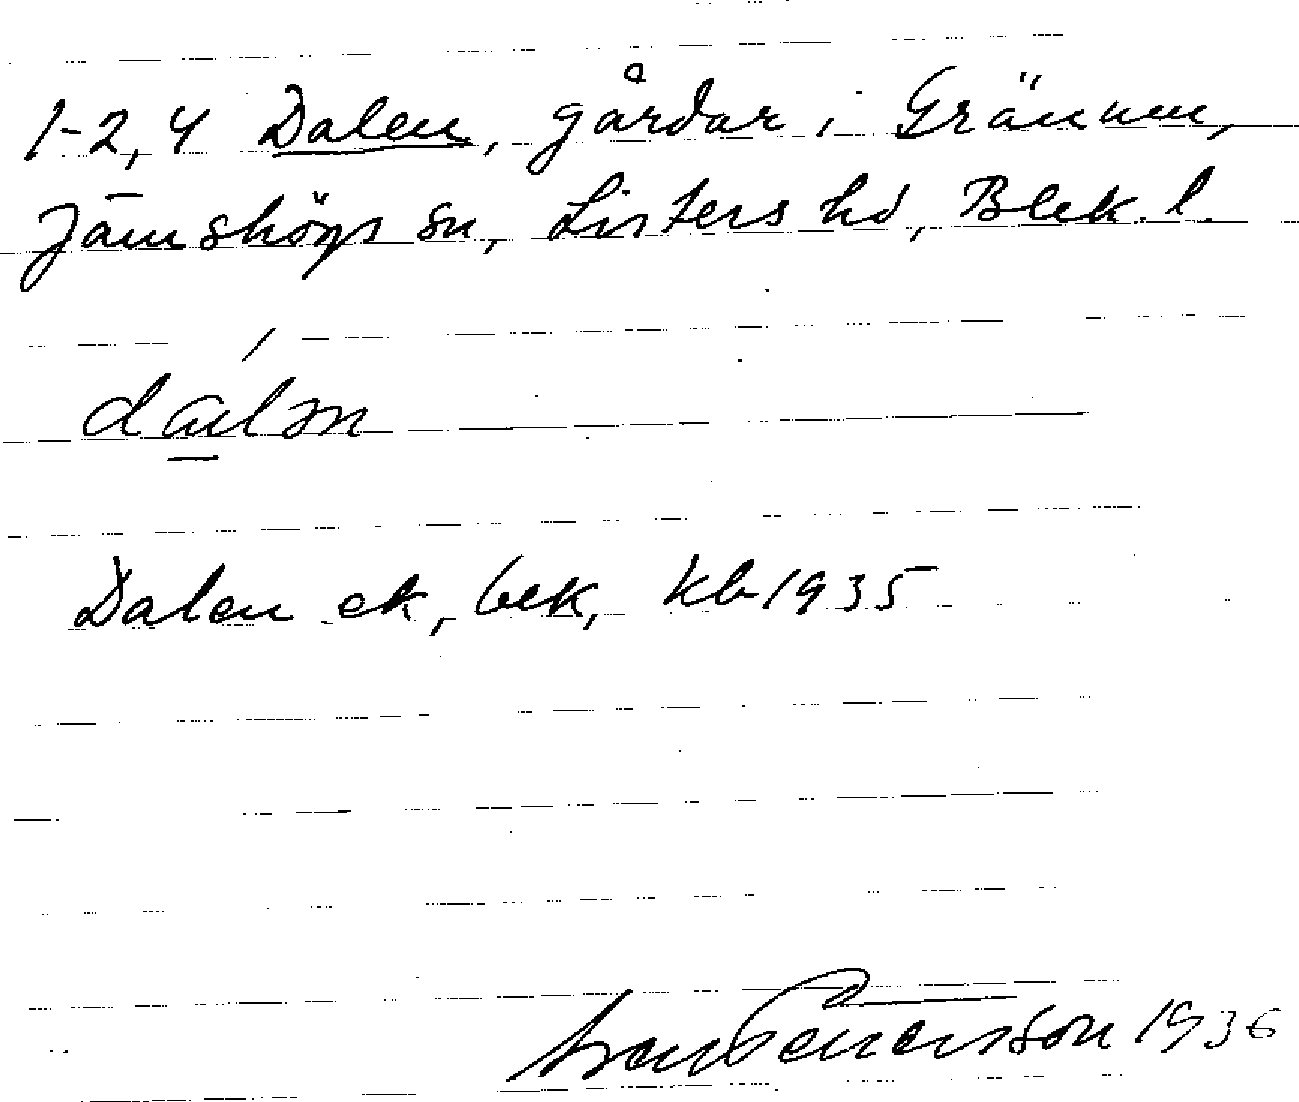 1-2, 4 Dalen, gårdar i Grännum,
Jämshögs sn, Listers hd, Blek. l.
dαulən
Dalen ek, bek, kb 1935
Petersson 1936